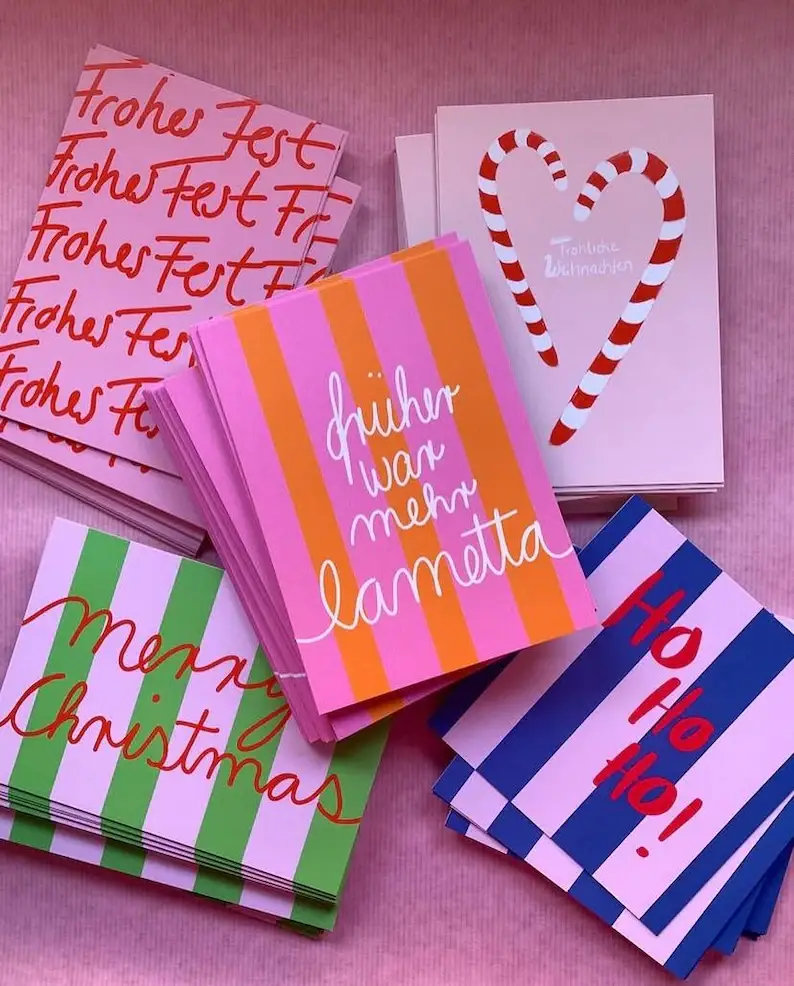 Frohes Fest
Frohes Fest Fr
Frohes Fest
Frohes Fest
Frohes Fe
Fröhliche
Weihnachten
früher
war
mehr
lametta
merry
Christmas
Ho
Ho
Ho!